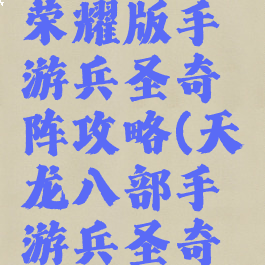 荣耀版手
游兵圣奇
阵攻略(天
龙八部手
游兵圣奇